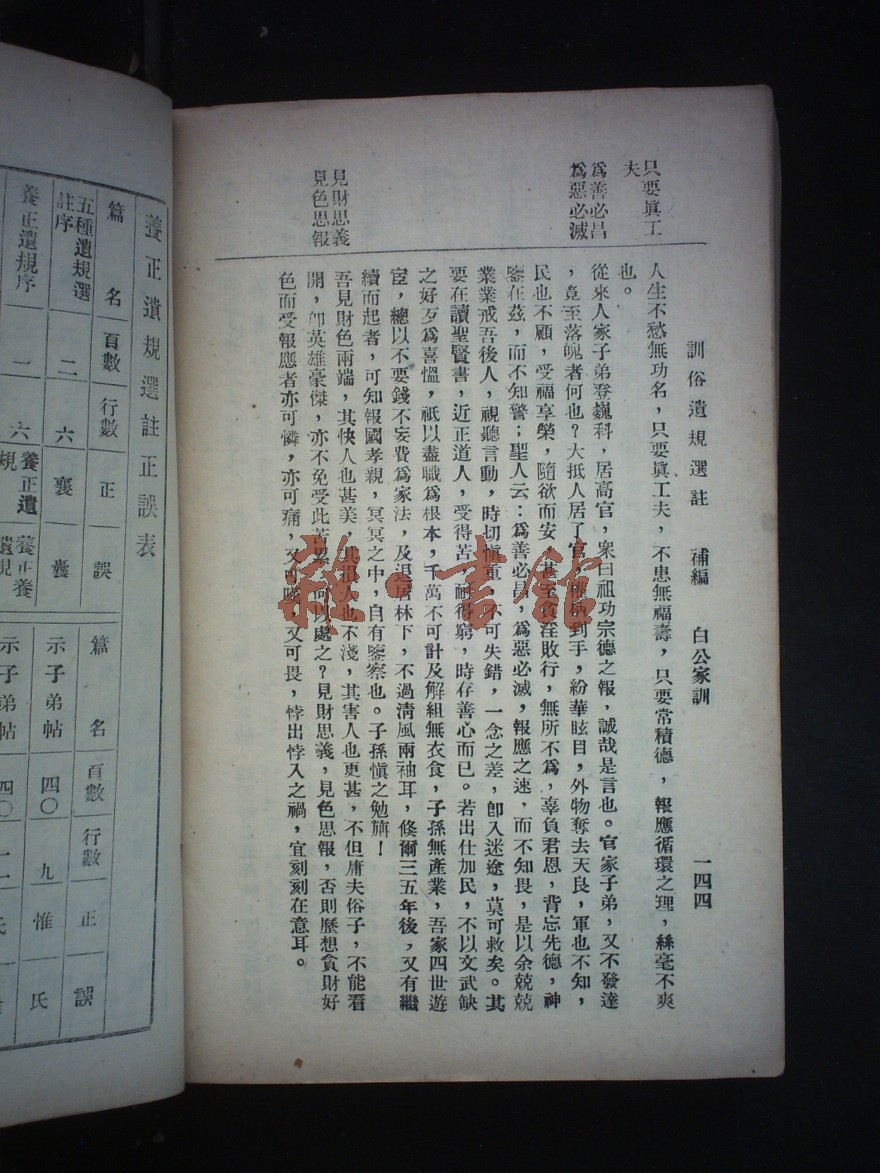 訓俗遺規選註　補編　白公家訓　一四四
只要眞工
夫
爲善必昌
爲惡必滅
見財思義
見色思報
人生不愁無功名，只要眞工夫，不患無福壽，只要常積德，報應循環之理，絲毫不爽
也。
從來人家子弟登巍科，居高官，衆曰祖功宗德之報，誠哉是言也。官家子弟，又不發達
，竟至落魄者何也？大抵人居了官，權柄到手，紛華眩目，外物奪去天良，軍也不知，
民也不顧，受福享榮，隨欲而安，甚至貪淫敗行，無所不爲，辜負君恩，背忘先德，神
鑒在茲，而不知警；聖人云：爲善必昌，爲惡必滅，報應之速，而不知畏，是以余兢兢
業業戒吾後人，視聽言動，時切愼重，不可失錯，一念之差，卽入迷途，莫可救矣。其
要在讀聖賢書，近正道人，受得苦，耐得窮，時存善心而已。若出仕加民，不以文武缺
之好歹爲喜慍，祇以盡職爲根本，千萬不可計及解組無衣食，子孫無產業，吾家四世遊
宦，總以不要錢不妄費爲家法，及退居林下，不過淸風兩袖耳，倏爾三五年後，又有繼
續而起者，可知報國孝親，冥冥之中，自有鑒察也。子孫愼之勉旃！
吾見財色兩端，其快人也甚美，其損人也不淺，其害人也更甚，不但庸夫俗子，不能看
開，卽英雄豪傑，亦不免受此苦累，何以處之？見財思義，見色思報，否則歷想貪財好
色而受報應者亦可憐，亦可痛，又可嘆，又可畏，悖出悖入之禍，宜刻刻在意耳。
養正遺規選註正誤表
篇名　頁數　行數　正　誤
五種遺規選註序　二　六　襄　囊
養正遺規序　一　六　養正遺規　養正養遺規
篇名　頁數　行數　正　誤
示子弟帖　四〇　九　惟　氏
示子弟帖　四〇　一一　氏
雜·書館